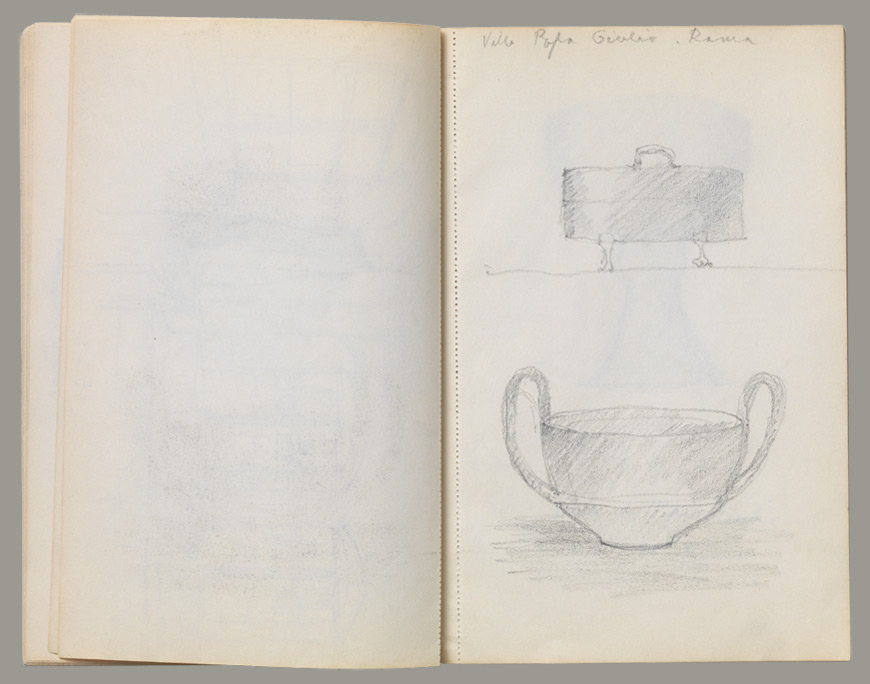 Villa Papa Giulio. Roma